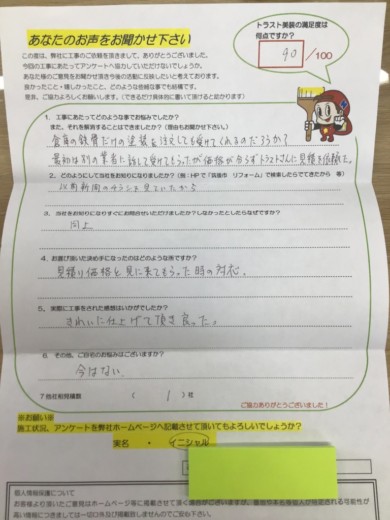 トラスト美装の満足度は
何点ですか?
90 /100
あなたのお声をお聞かせ下さい
この度は、弊社に工事のご依頼を頂きまして、ありがとうございました。
今回の工事にあたってアンケートへ協力していただけないでしょうか。
あなた様のご意見をお聞かせ頂き今後の活動に反映したいと考えております。
良かったこと・嬉しかったこと、どのような些細な事でも結構です。
是非、ご協力よろしくお願いします。(できるだけ具体的に書いて頂けると助かります)
1. 工事にあたってどのような事でお悩みでしたか?
また、それを解消することはできましたか?(理由もお聞かせ下さい。)
倉庫の鉄骨だけの塗装を注文しても受けてくれるのだろうか?
最初は別の業者に話して受けてもらったが価格が合わず トラストさんに見積を依頼。
2. どのようにして当社をお知りになりましたか?(例:HPで「筑後市 リフォーム」で検索したらでてきたから 等)
以前新聞のチラシを見ていたから
3. 当社をお知りになりすぐにお問合せいただけましたか?しなかったとしたらなぜですか?
同上
4. お選び頂いた決め手になったのはどのような所ですか?
見積り価格と見に来てもらった時の対応。
5. 実際に工事をされた感想はいかがでしたか?
きれいに仕上げて頂き良った。
6 その他、ご自宅のお悩みはございますか?
今はない。
7 他社相見積数 ( 1 )社
ご協力ありがとうございました!
※お願い※
施工状況、アンケートを弊社ホームページへ記載させて頂いてもよろしいでしょうか?
実名 ・ イニシャル
個人情報保護について